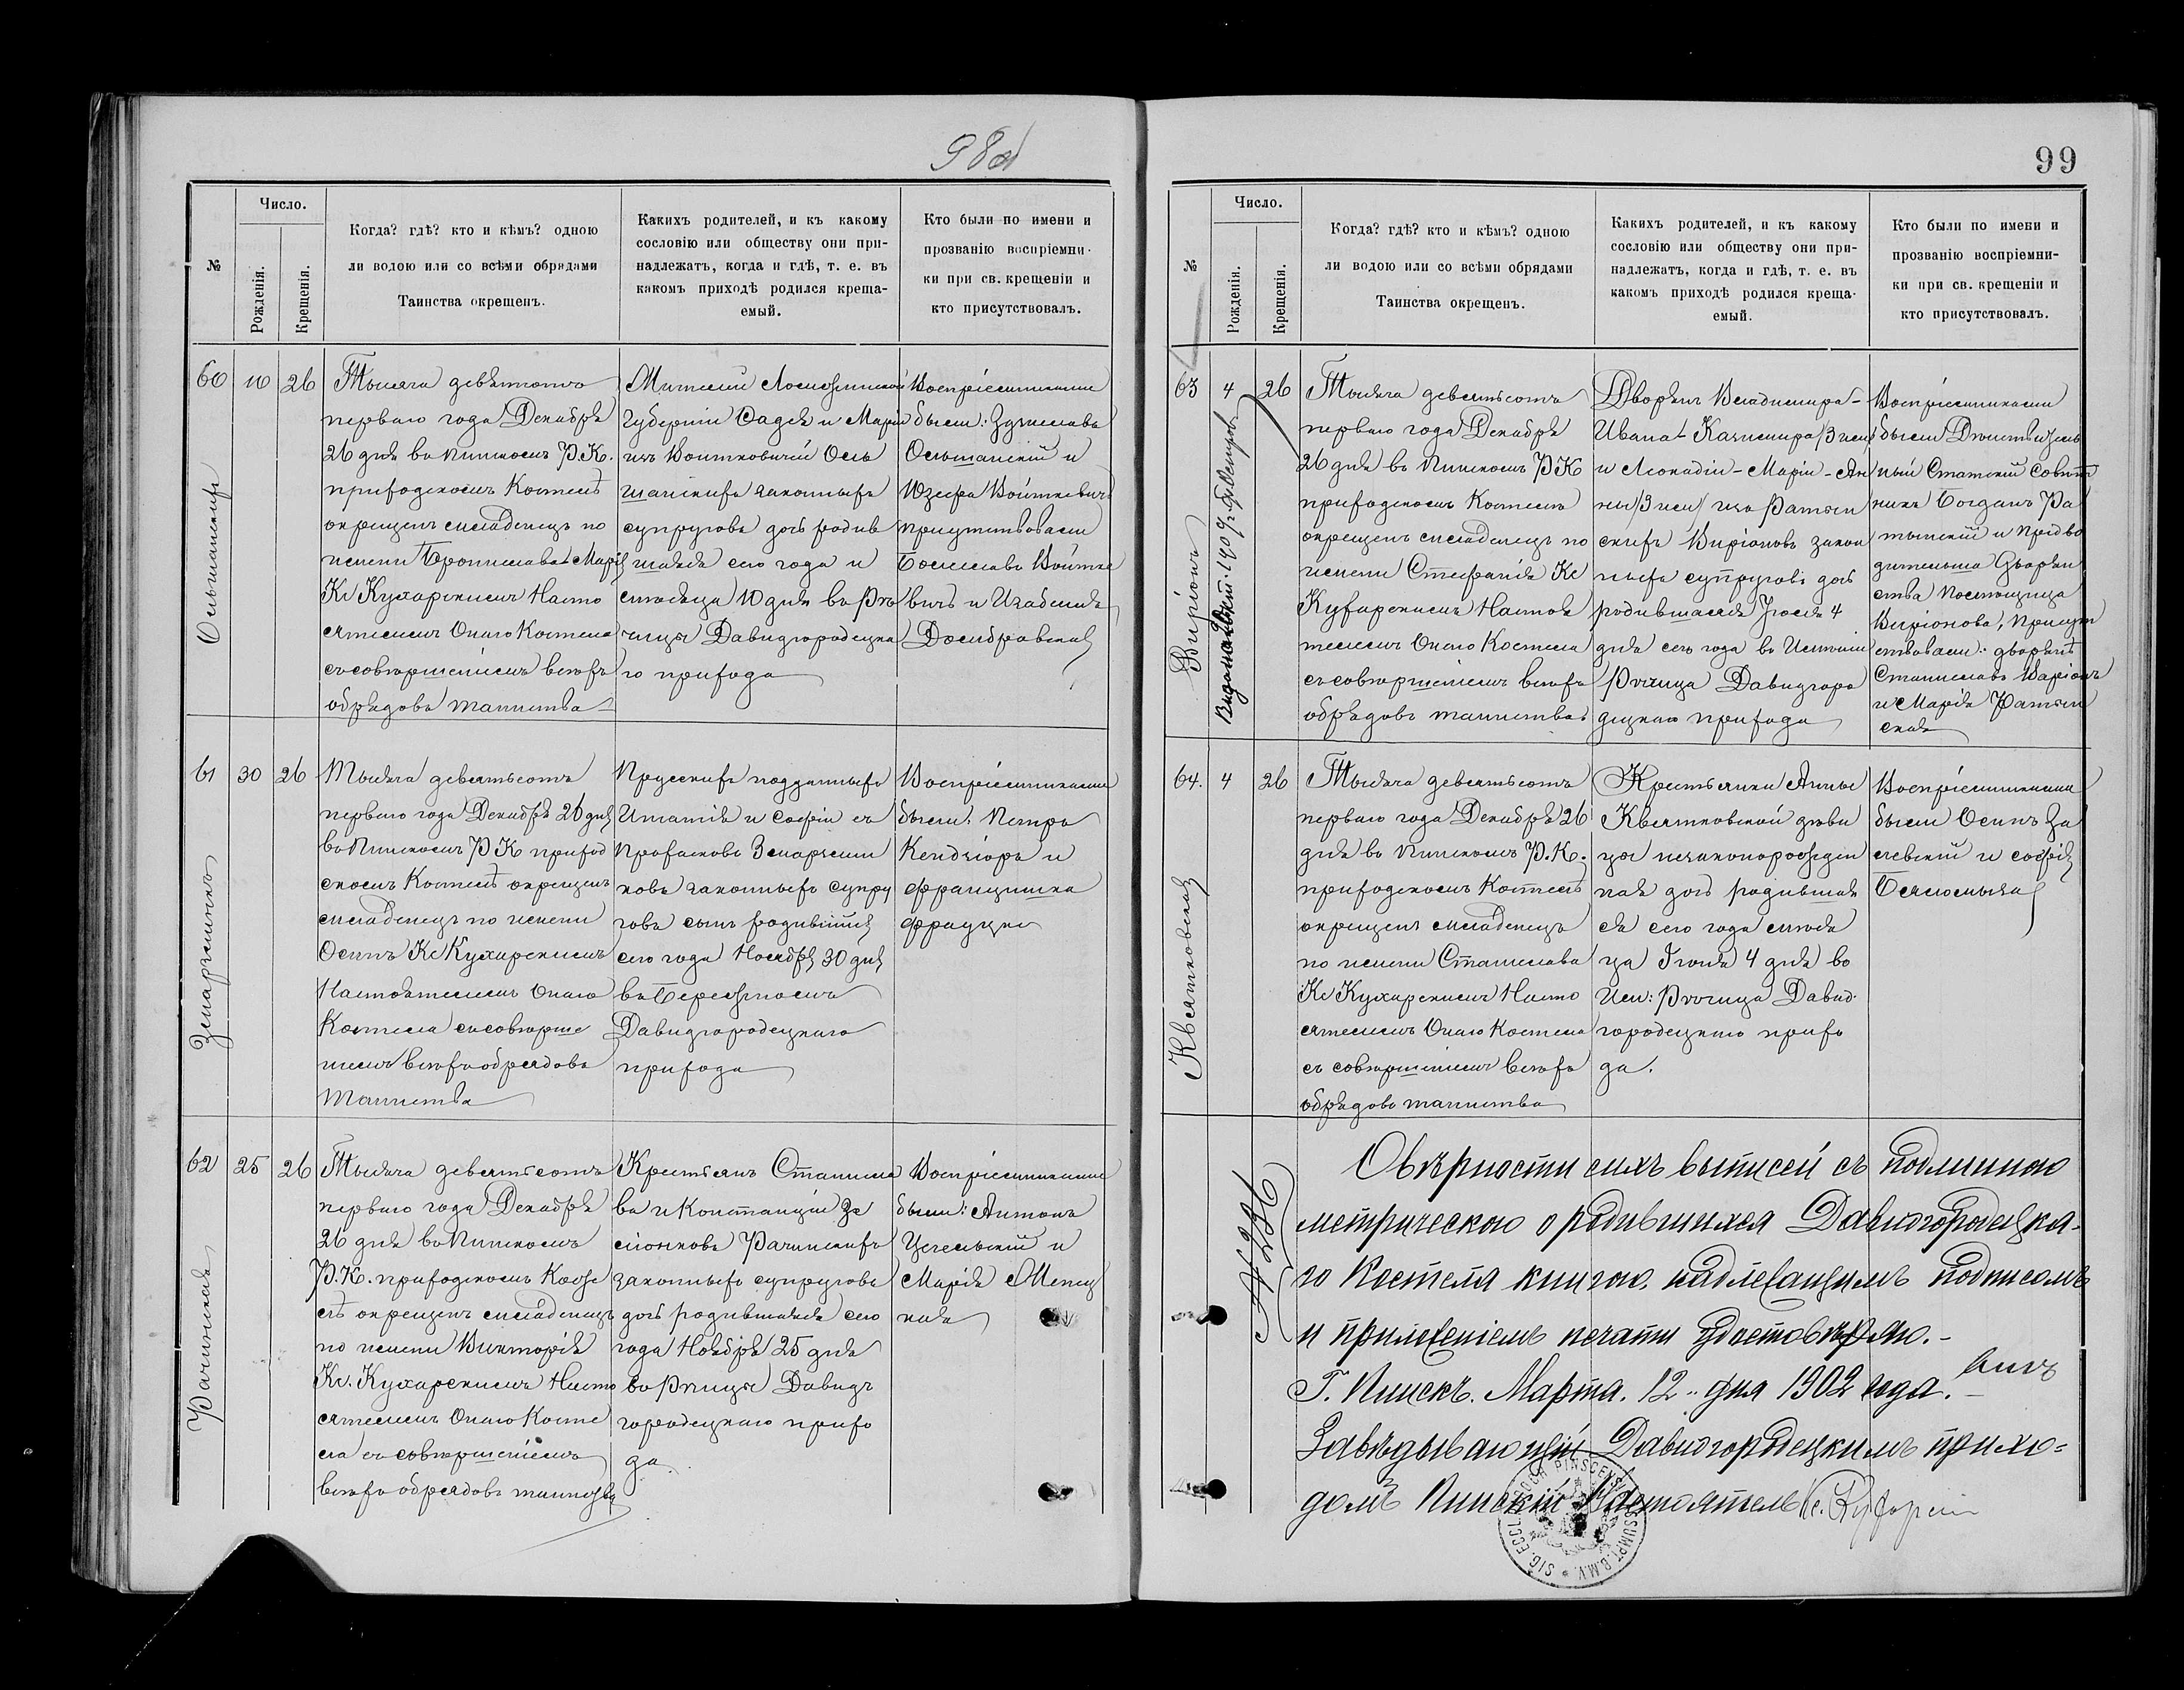 98об
№
Число.
Рожденія.
Крещенія.
Когда? гдѣ? кто и кѣмъ? одною
ли водою или со всѣми обрядами
Таинства окрещенъ.
Какихъ родителей, и къ какому
сословію или обществу они при-
надлежатъ, когда и гдѣ, т. е. въ
какомъ приходѣ родился креща-
емый.
Кто были по имени и
прозванію воспріемни-
ки при св. крещеніи и
кто присутствовалъ.
60 10 26
Тысяча девятьсотъ
перваго года Декабря
26 дня въ Пинскомъ Р.К.
приходскомъ Костелѣ
окрещенъ младенецъ по
имени Бронислава-Марія
Кс Кухарскимъ Насто
ятелемъ Онаго Костела
съ совершеніемъ всѣхъ
обрядовъ таинства
губерніи Фадея и Маріи
изъ Войткевичей Оль
шанскихъ законныхъ
супруговъ дочь родив
шаяся сего года и
месяца 10 дня въ
Давидгородецка
го прихода
Воспріемниками
были: Здзислава
Ольшанскій и
Юзефа Войткевичъ
присутствовали
Болеслава Войтке
вичъ и Изабелла
Домбровская
61 30 26
Тысяча девятьсотъ
перваго года Декабря 26 дня
въ Пинскомъ Р К приход
скомъ Костелѣ окрещенъ
младенецъ по имени
Осипъ Кс Кухарскимъ
Настоятелемъ Онаго
Костела съ соверше
ніемъ всѣхъ обрядовъ
Таинства
Прусскихъ подданныхъ
Игнатія и Софіи съ
законныхъ супру
говъ сынъ родившійся
сего года Ноября 30 дня
въ Бережномъ
Давидгородецкаго
прихода
Воспріемниками
были: Петръ
Кендзіоръ и
Францишка
62 25 26
Тысяча девятьсотъ
перваго года Декабря
26 дня въ Пинскомъ
Р.К. приходскомъ Косте
лѣ окрещенъ младенецъ
по имени Викторія
Кс. Кухарскимъ Насто
ятелемъ Онаго Косте
ла съ совершеніемъ
всѣхъ обрядовъ таинства
Крестьянъ Станисла
ва и Констанціи За
Рачинскихъ
законныхъ супруговъ
дочь родившаяся сего
года Ноября 25 дня
Давидъ
городецкаго прихо
да.
Воспріемниками
были: Антонъ
и
Марія
Рачинская
99
№
Число.
Рожденія.
Крещенія.
Когда? гдѣ? кто и кѣмъ? одною
ли водою или со всѣми обрядами
Таинства окрещенъ.
Какихъ родителей, и къ какому
сословію или обществу они при-
надлежатъ, когда и гдѣ, т. е. въ
какомъ приходѣ родился креща-
емый.
Кто были по имени и
прозванію воспріемни-
ки при св. крещеніи и
кто присутствовалъ.
63 4 26
Тысяча девятьсотъ
перваго года Декабря
26 дня въ Пинскомъ Р К
приходскомъ Костелѣ
окрещенъ младенецъ по
имени Стефанія Кс
Кухарскимъ Настоя
телемъ Онаго Костела
съ совершеніемъ всѣхъ
обрядовъ таинства
Дворянъ Владимира-
Ивана-Казимира /3 им/
и Леокадіи-Маріи-Ан
ны /3 им/ изъ Ратын
скихъ Виріоновъ закон
ныхъ супруговъ дочь
родившаяся Іюля 4
дня сего года въ Имѣніи
Давидгоро
децкаго прихода
Воспріемниками
были Дѣйствитель
ный Статскій Совѣт
никъ Богданъ Ра
тынскій и Предво
дительша Дворян
ства
Виріонова, Присут
ствовали: дворянѣ
Станиславъ Виріонъ
и Марія Ратын
ская
Виріонъ
64. 4 26
Тысяча девятьсотъ
перваго года Декабря 26
дня въ Пинскомъ Р.К.
приходскомъ Костелѣ
окрещенъ младенецъ
по имени Станислава
Кс Кухарскимъ Насто
ятелемъ Онаго Костела
съ совершеніемъ всѣхъ
обрядовъ таинства
Крестьянки Анны
Квятковской дѣви
цы незаконнорожден
ная дочь родившая
ся сего года меся
ца Іюля 4 дня во
Давид
городецкаго прихо
да.
Воспріемниками
были Осипъ За
левскій и Софія
Квятковская
№ 236
О вѣрности сихъ выписей съ подлинною
метрическою о родившихся Давидгородецка-
го Костела книгою. надлежащимъ подписомъ
и приложеніемъ печати удостовѣряю.-
Г. Пинскъ. Марта. 12 дня 1902 года.
Завѣдывающій Давидгородецкимъ прихо=
домъ Пинскій Настоятель Кс. Кухарскій
SIG. ECCL. PAROCH. PINSCENSIS ASSUMPT. B.M.V.